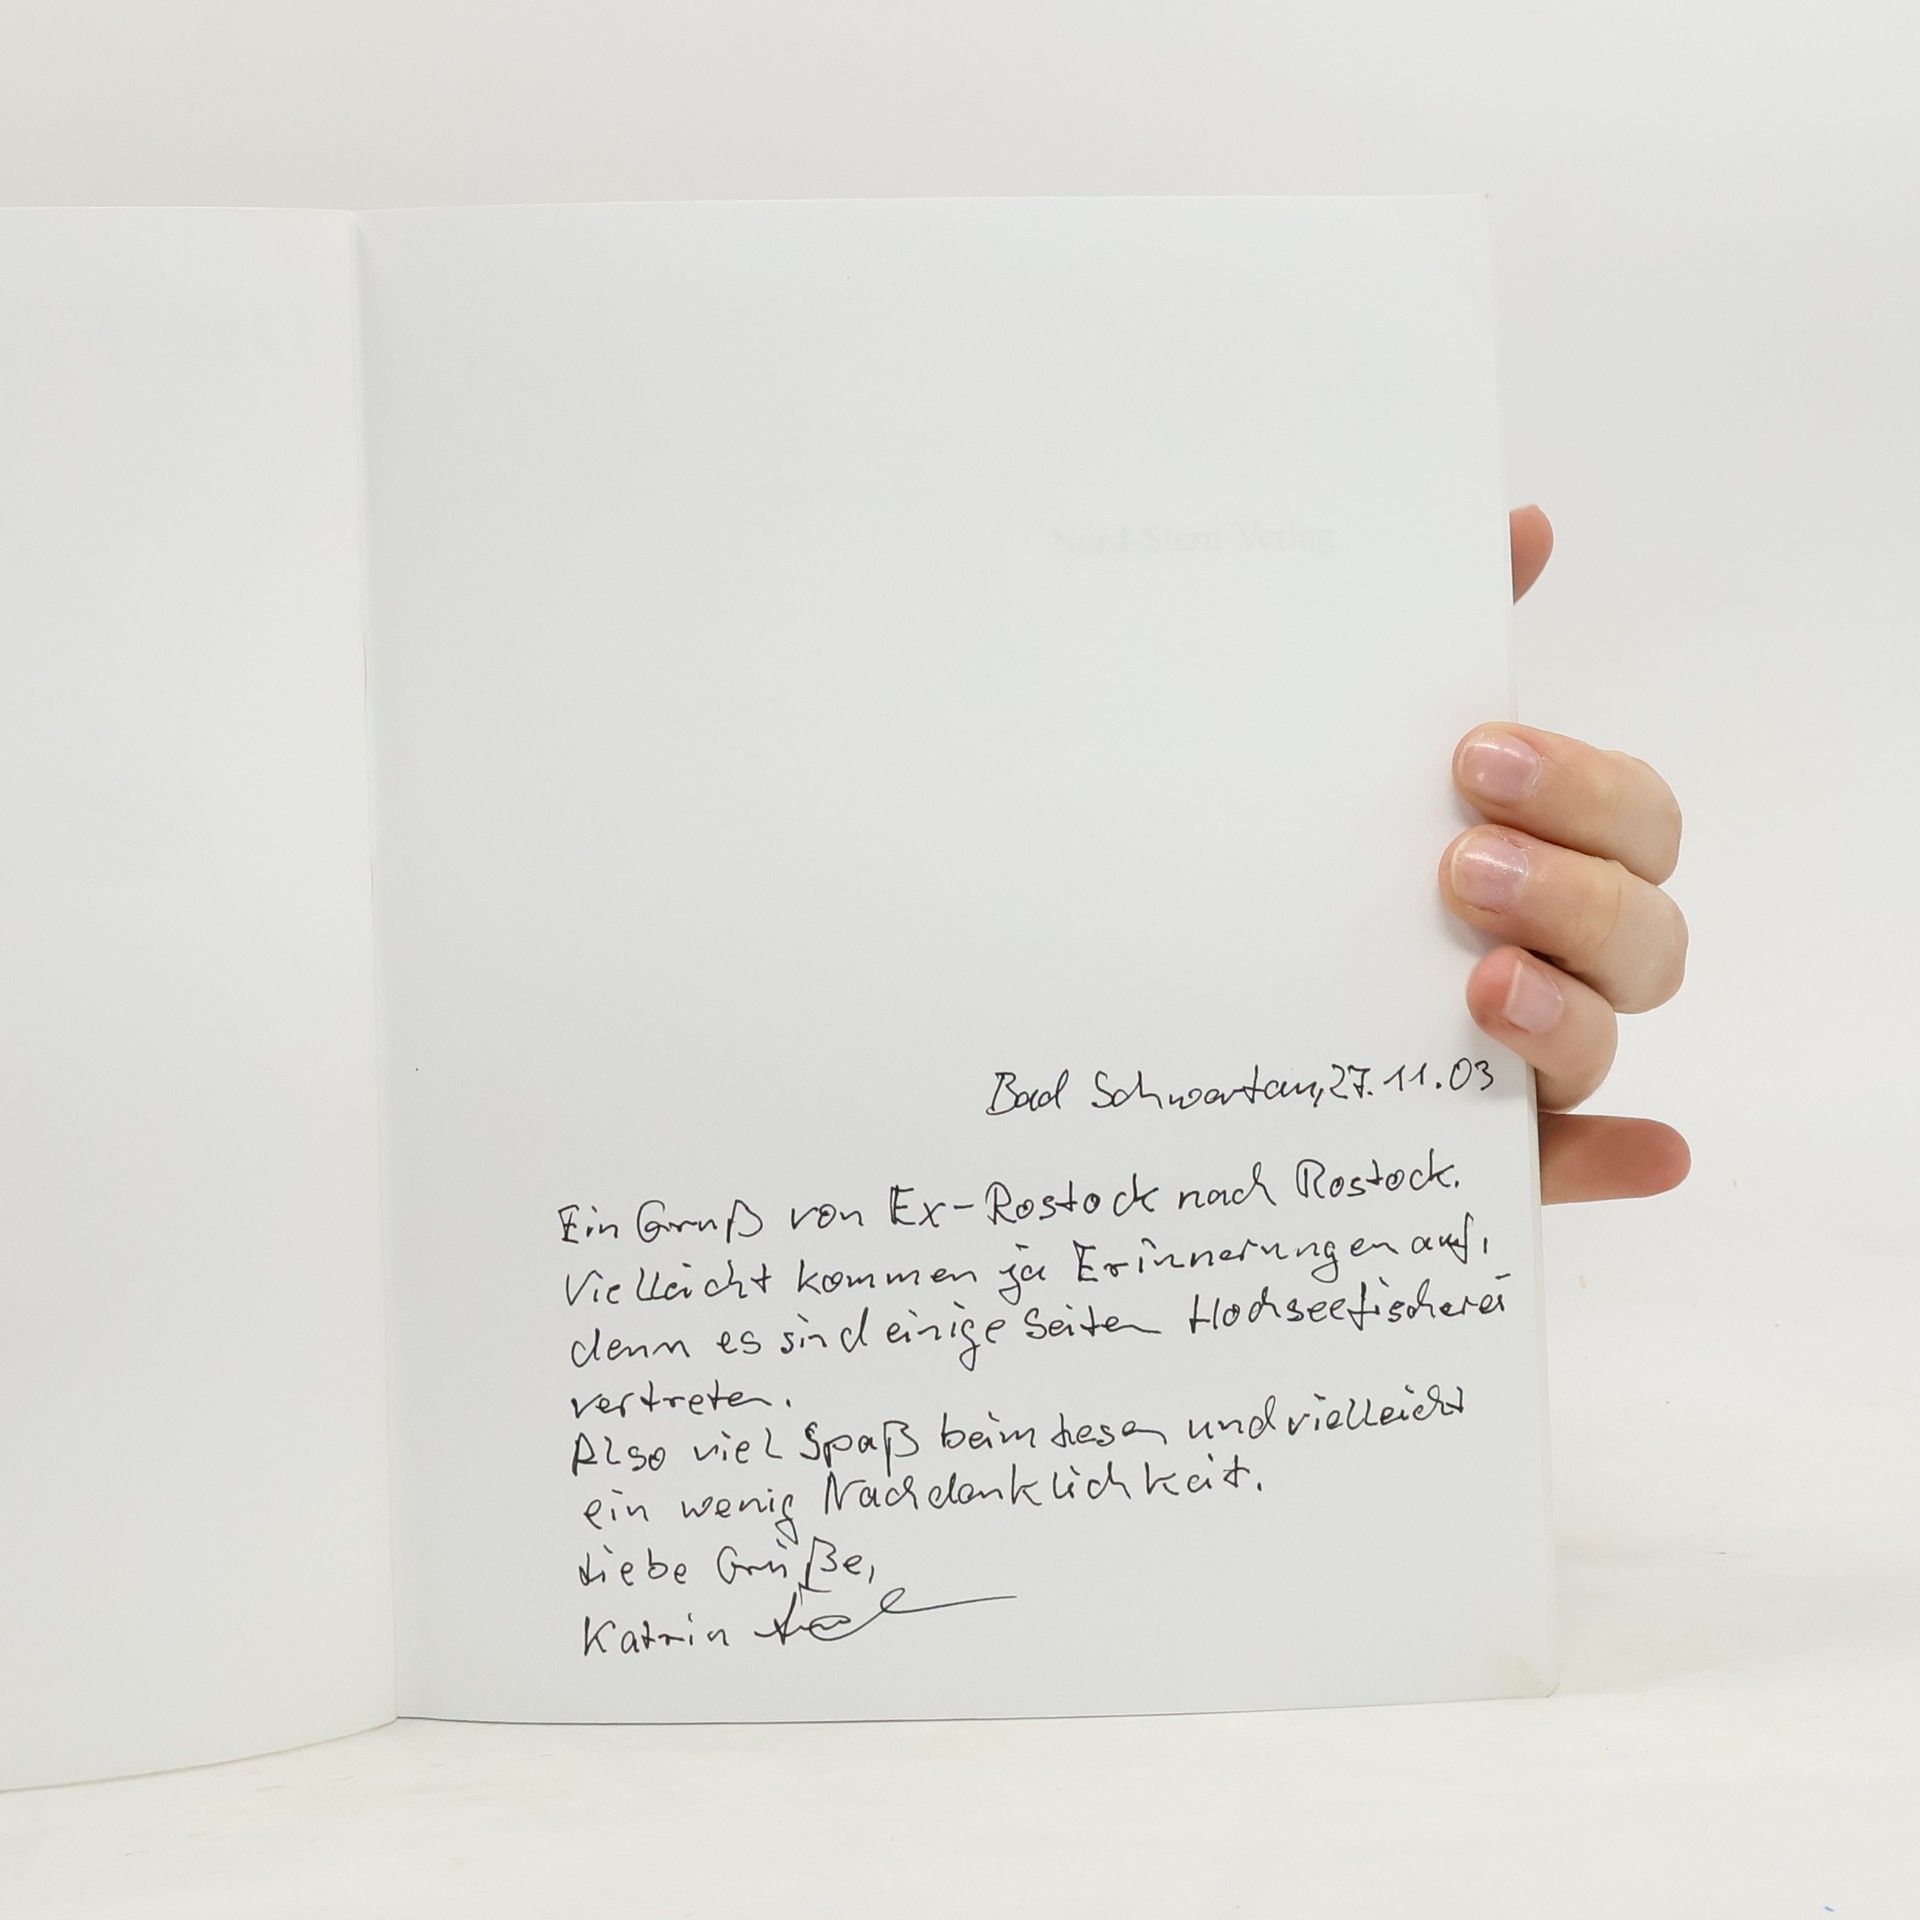 Nord-Stern-Verlag
Bad Schwartau, 27.11.03
Ein Gruß von Ex-Rostock nach Rostock.
Vielleicht kommen ja Erinnerungen auf,
denn es sind einige Seiten Hochseefischerei
vertreten.
Also viel Spaß beim Lesen und vielleicht
ein wenig Nachdenklichkeit.
Liebe Grüße,
Katrin